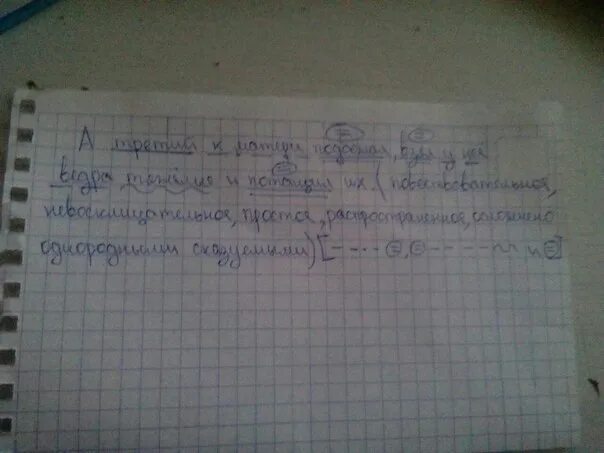 А третий к матери подбежал, взял у неё
ведра тяжёлые и потащил их. (повествовательное,
невосклицательное, простое, распространенное, осложнено
однородными сказуемыми) [---- =, = ----- и =]